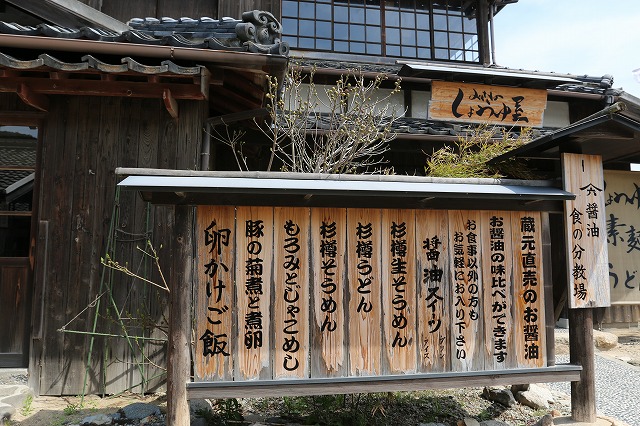 しょうゆ屋
蔵元直売のお醤油
お醤油の味比べができます
お食事以外の方も
お気軽にお入り下さい
醤油スイーツ
杉樽生そうめん
杉樽うどん
杉樽そうめん
もろみとじゃこめし
豚の菊煮と煮卵
卵かけご飯
醤油
食の分教場